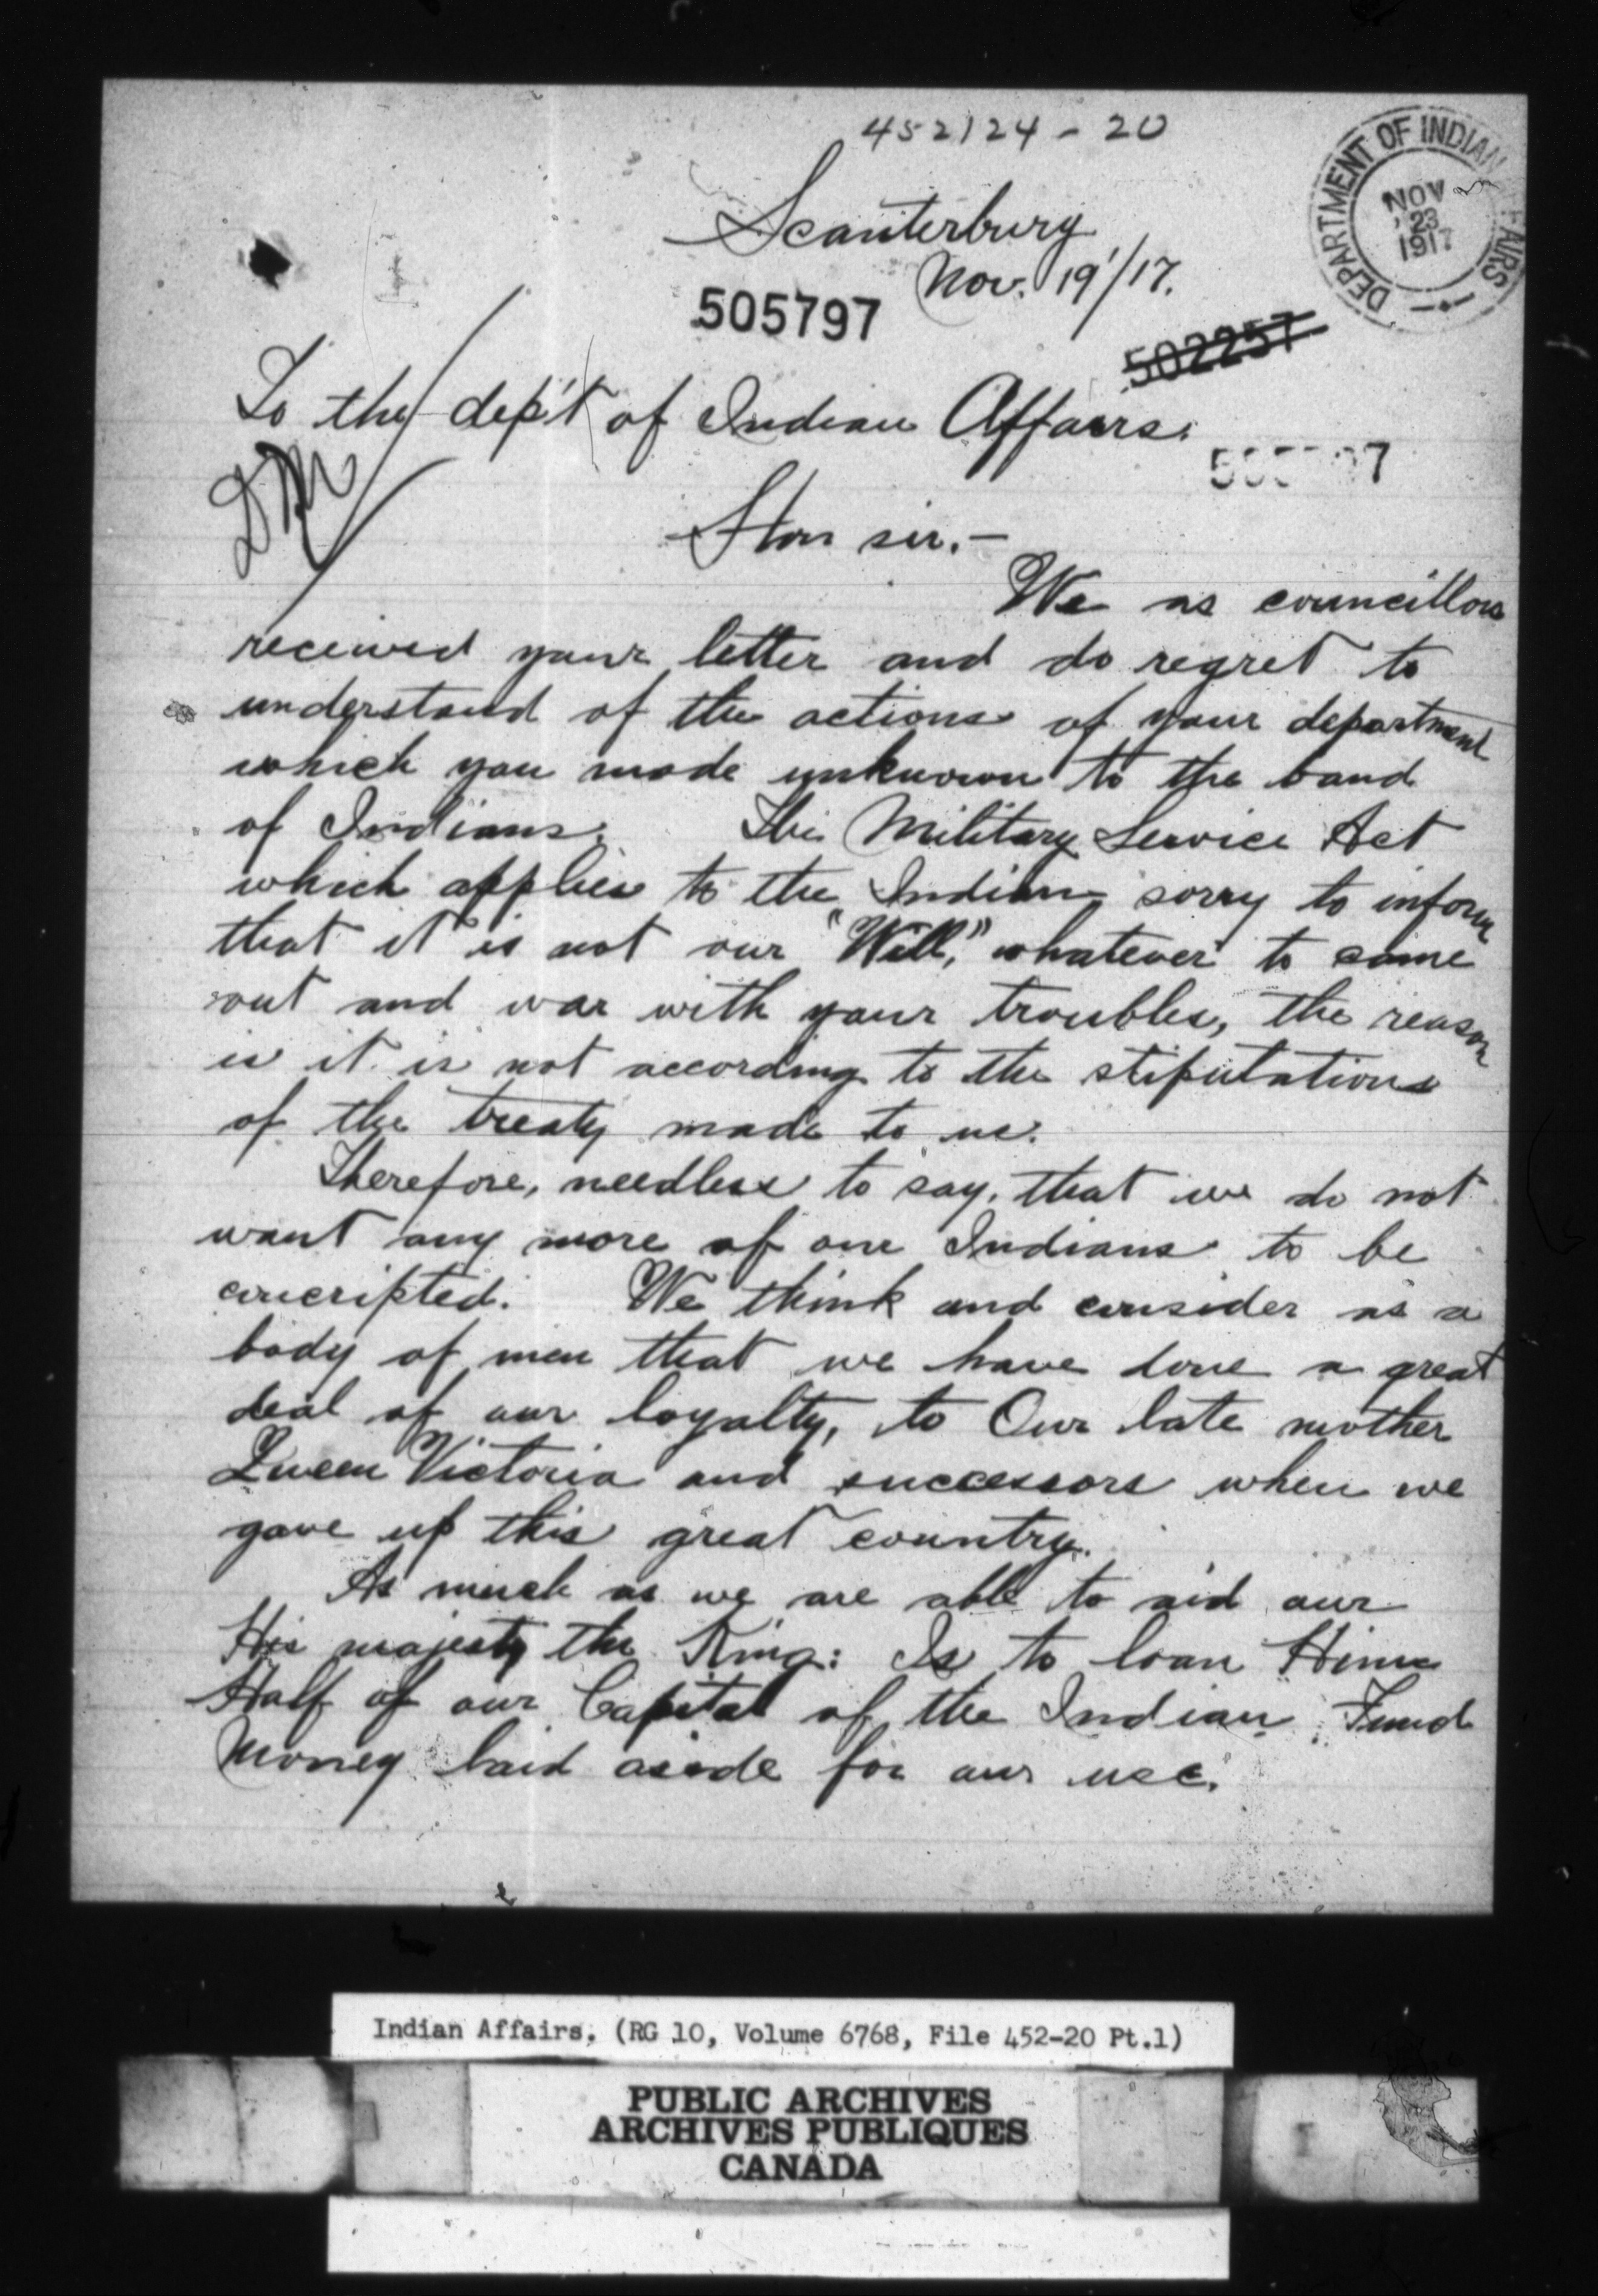 452124-20
DEPARTMENT OF INDIAN AFFAIRS
NOV 23 1917
Scanterbury
Nov. 19/17.
505797
502257
To the dep't of Indian Affairs.
Hon sir,-
We as councillors
received your letter and do regret to
understand of the actions of your department
which you made unknown to the band
of Indians. The Military Service Act
which applies to the Indians sorry to inform
that it is not our "Will," whatever to come
out and war with your troubles, the reason
is it is not according to the stipulations
of the treaty made to us.
Therefore, needless to say, that we do not
want any more of our Indians to be
concripted. We think and consider as a
body of men that we have done a great
deal of our loyalty, to Our late mother
Queen Victoria and successors when we
gave up this great country.
As much as we are able to aid our
His majesty the King: Is to loan Him
Half of our Capital of the Indian Fund
Money laid aside for our use.
Indian Affairs. (RG 10, Volume 6768, File 452-20 Pt.1)
PUBLIC ARCHIVES
ARCHIVES PUBLIQUES
CANADA